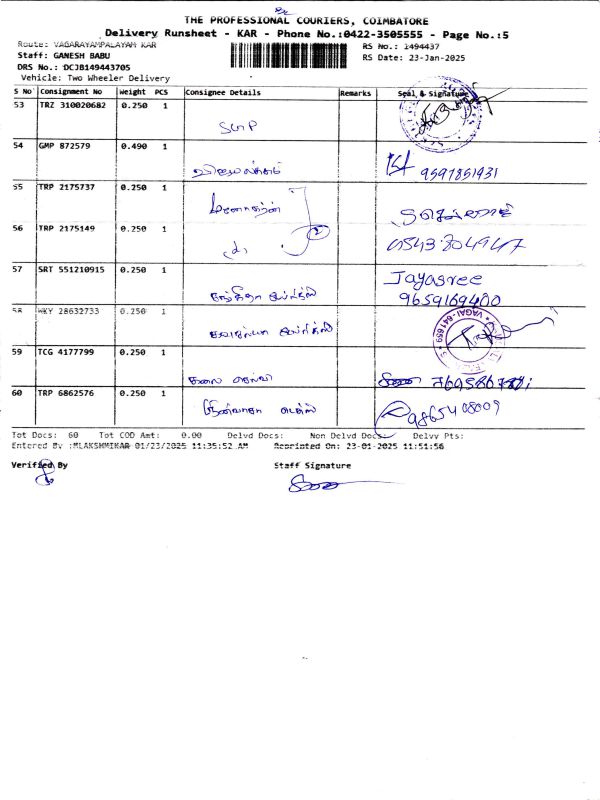 THE PROFESSIONAL COURIERS, COIMBATORE
Delivery Runsheet - KAR - Phone No.:0422-3505555 - Page No.:5
Route: VAGARAYAMPALAYAM KAR
RS No.: 1494437
Staff: GANESH BABU
RS Date: 23-Jan-2025
DRS No.: DCJB149443705
Vehicle: Two Wheeler Delivery
S No Consignment No Weight PCS Consignee Details Remarks Seal & Signature
53 TRZ 310020682 0.250 1
SGP
54 GMP 872579 0.490 1
9597851931
55 TRP 2175737 0.250 1
மனோகரன்
56 TRP 2175149 0.250 1
2
57 SRT 551210915 0.250 1
Jayasree
9659169400
58 WKY 28632733 0.250 1
VAGAI-641659
59 TCG 4177799 0.250 1
கலை செல்வி
60 TRP 6862576 0.250 1
9865408009
Tot Docs: 60 Tot COD Amt: 0.00 Delvd Docs: Non Delvd Docs: Delvy Pts:
Entered By :MLAKSHMMIKAR 01/23/2025 11:35:52 AM Reprinted On: 23-01-2025 11:51:56
Verified By
Staff Signature